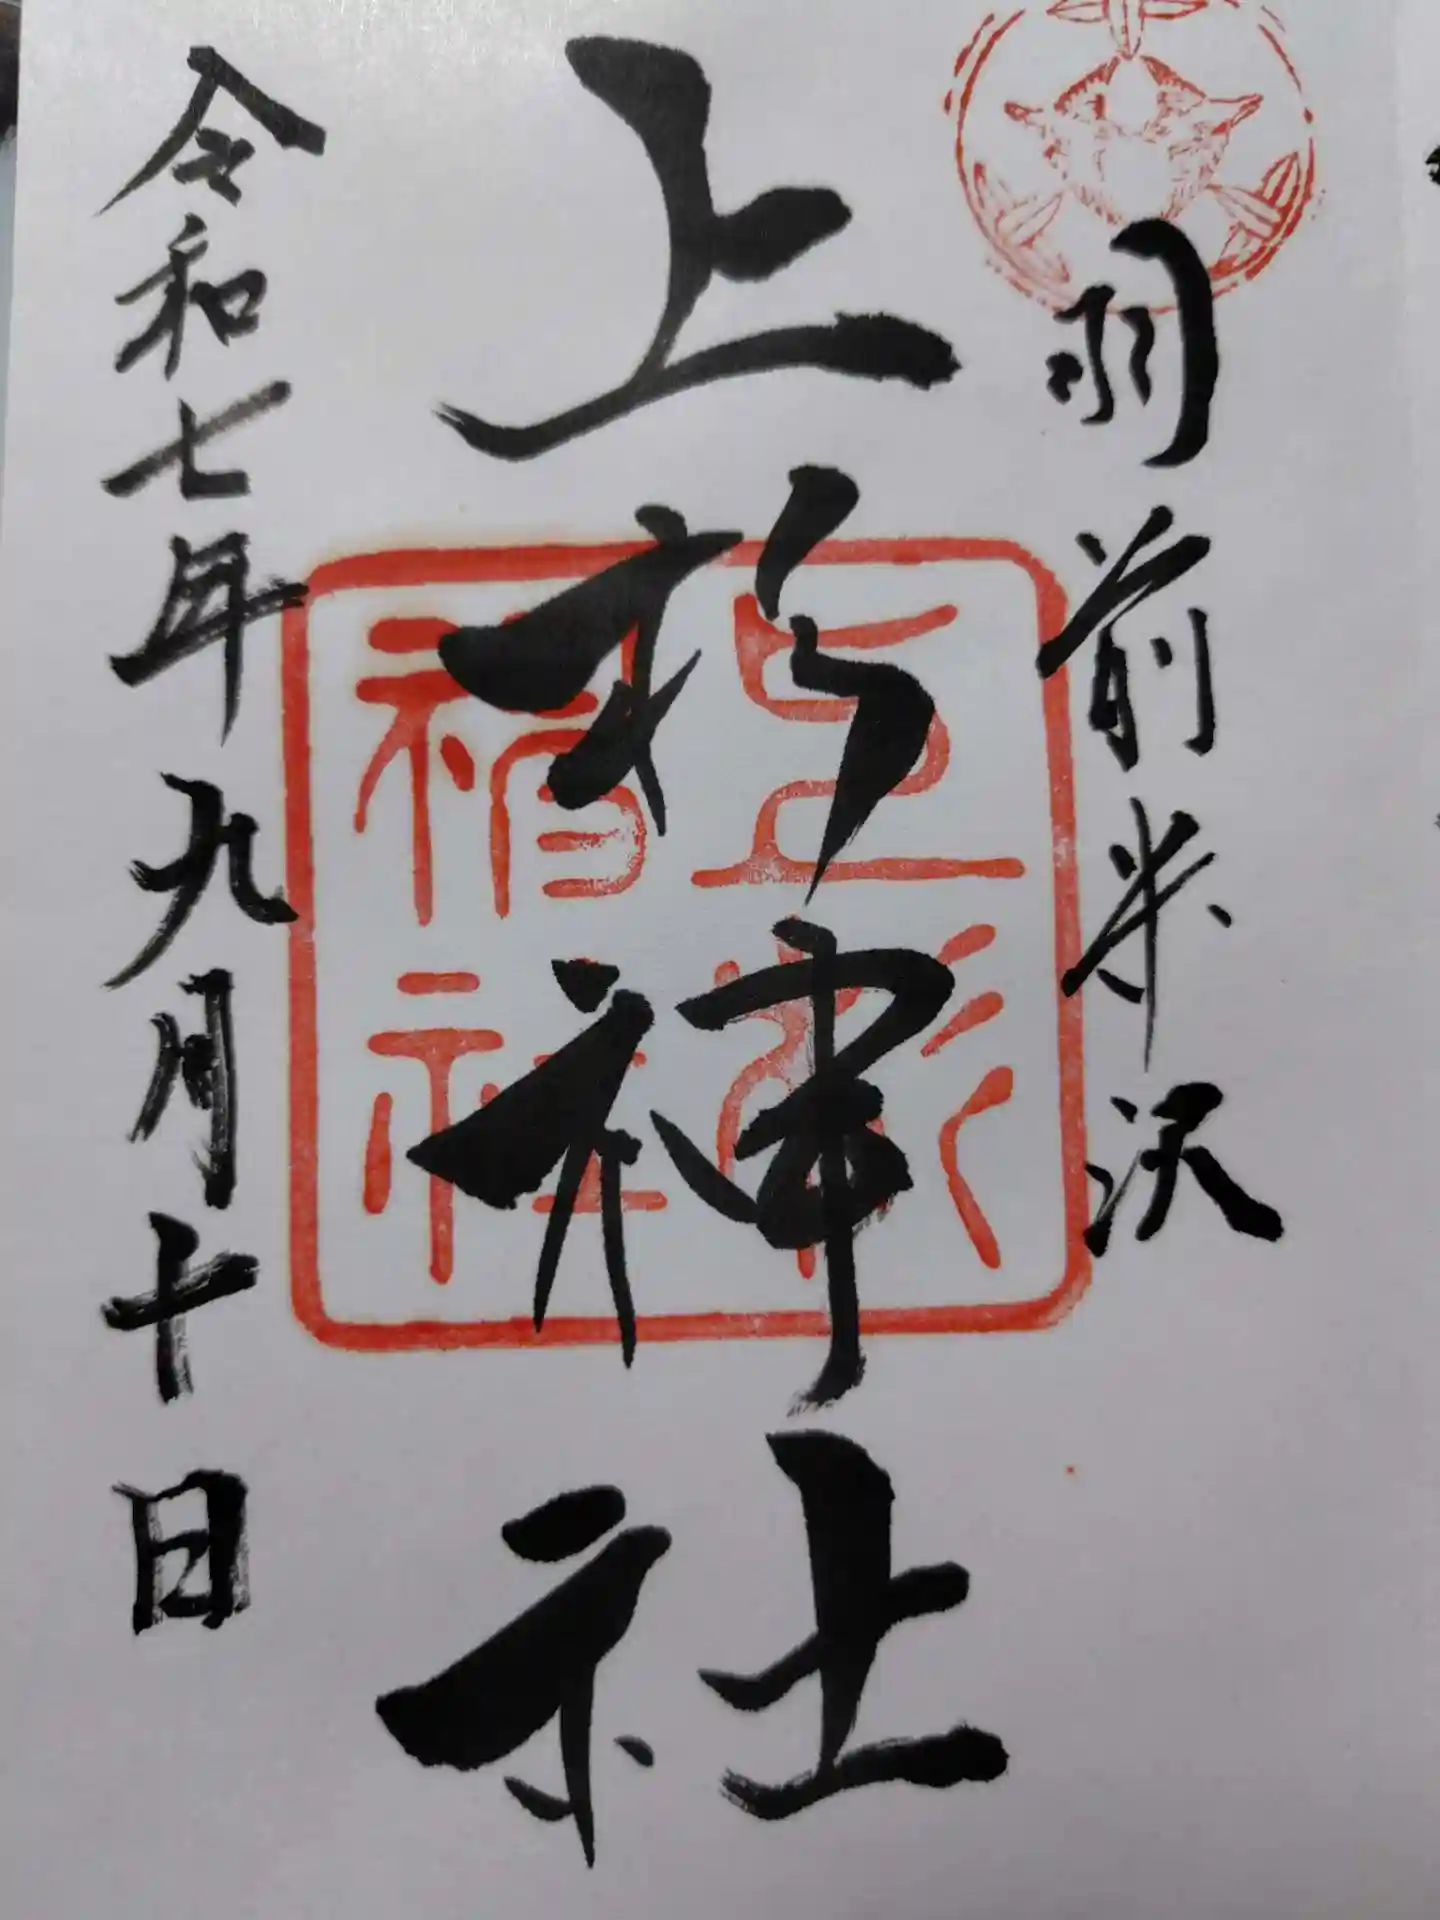 羽前米沢
上杉神社
上杉神社
令和七年九月十日